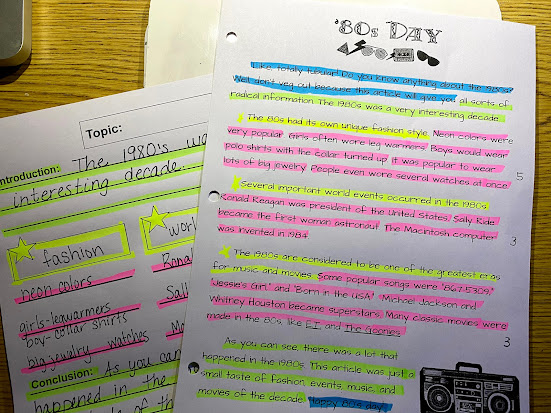 '80s DAY
Like, totally tubular! Do you know anything about the 1980s?
Well don't veg out because this article will give you all sorts of
radical information. The 1980s was a very interesting decade.
The 80s had its own unique fashion style. Neon colors were
very popular. Girls often wore leg warmers. Boys would wear
polo shirts with the collar turned up. It was popular to wear
lots of big jewelry. People even wore several watches at once.
5
Several important world events occurred in the 1980s.
Ronald Reagan was president of the United States. Sally Ride
became the first woman astronaut. The Macintosh computer
was invented in 1984.
3
The 1980s are considered to be one of the greatest eras
for music and movies. Some popular songs were "867-5309,"
"Jessie's Girl," and "Born in the USA." Michael Jackson and
Whitney Houston became superstars. Many classic movies were
made in the 80s, like E.T. and The Goonies.
3
As you can see, there was a lot that
happened in the 1980s. This article was just a
small taste of fashion, events, music, and
movies of the decade. Happy 80s day,
Topic:
Introduction: The 1980's wa
interesting decade.
fashion
worl
neon colors
Rona
girls-legwarmers
Sall
boy-collar shirts
big jewelry watches
Ma
Conclusion: As you can
happened in the